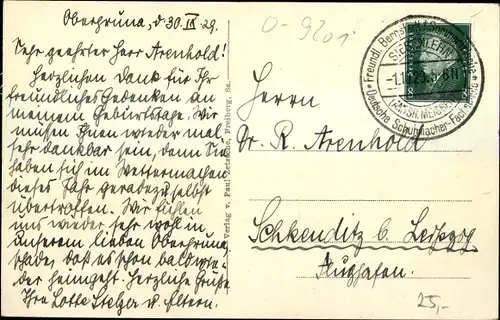 Obergruna, d 30. IX 29.
Sehr geehrter Herr Arenhold!
Herzlichen Dank für Ihr
freundliches Gedenken an
meinem Geburtstage. Wir
müssen Ihnen wieder mal
sehr dankbar sein, denn Sie
haben sich im Wettermachen
dieses Jahr geradezu selbst
übertroffen. Wir fühlen
uns wieder sehr wohl in
unserem lieben Obergruna,
schade, daß es schon bald wie-
der heimgeht. Herzliche Grüße
Ihre Lotte Stelzer u. Eltern.
Verlag v. Paul Zetzsche, Freiberg, Sa.
0-9201
SIEBENLEHN
-1.10.29.
(AMTSH. MEISSEN)
Deutsche Schuhmacher-Fachschule
Herrn
Dr. R. Arenhold
Schkeuditz b/ Leipzig
Flughafen.
25,-